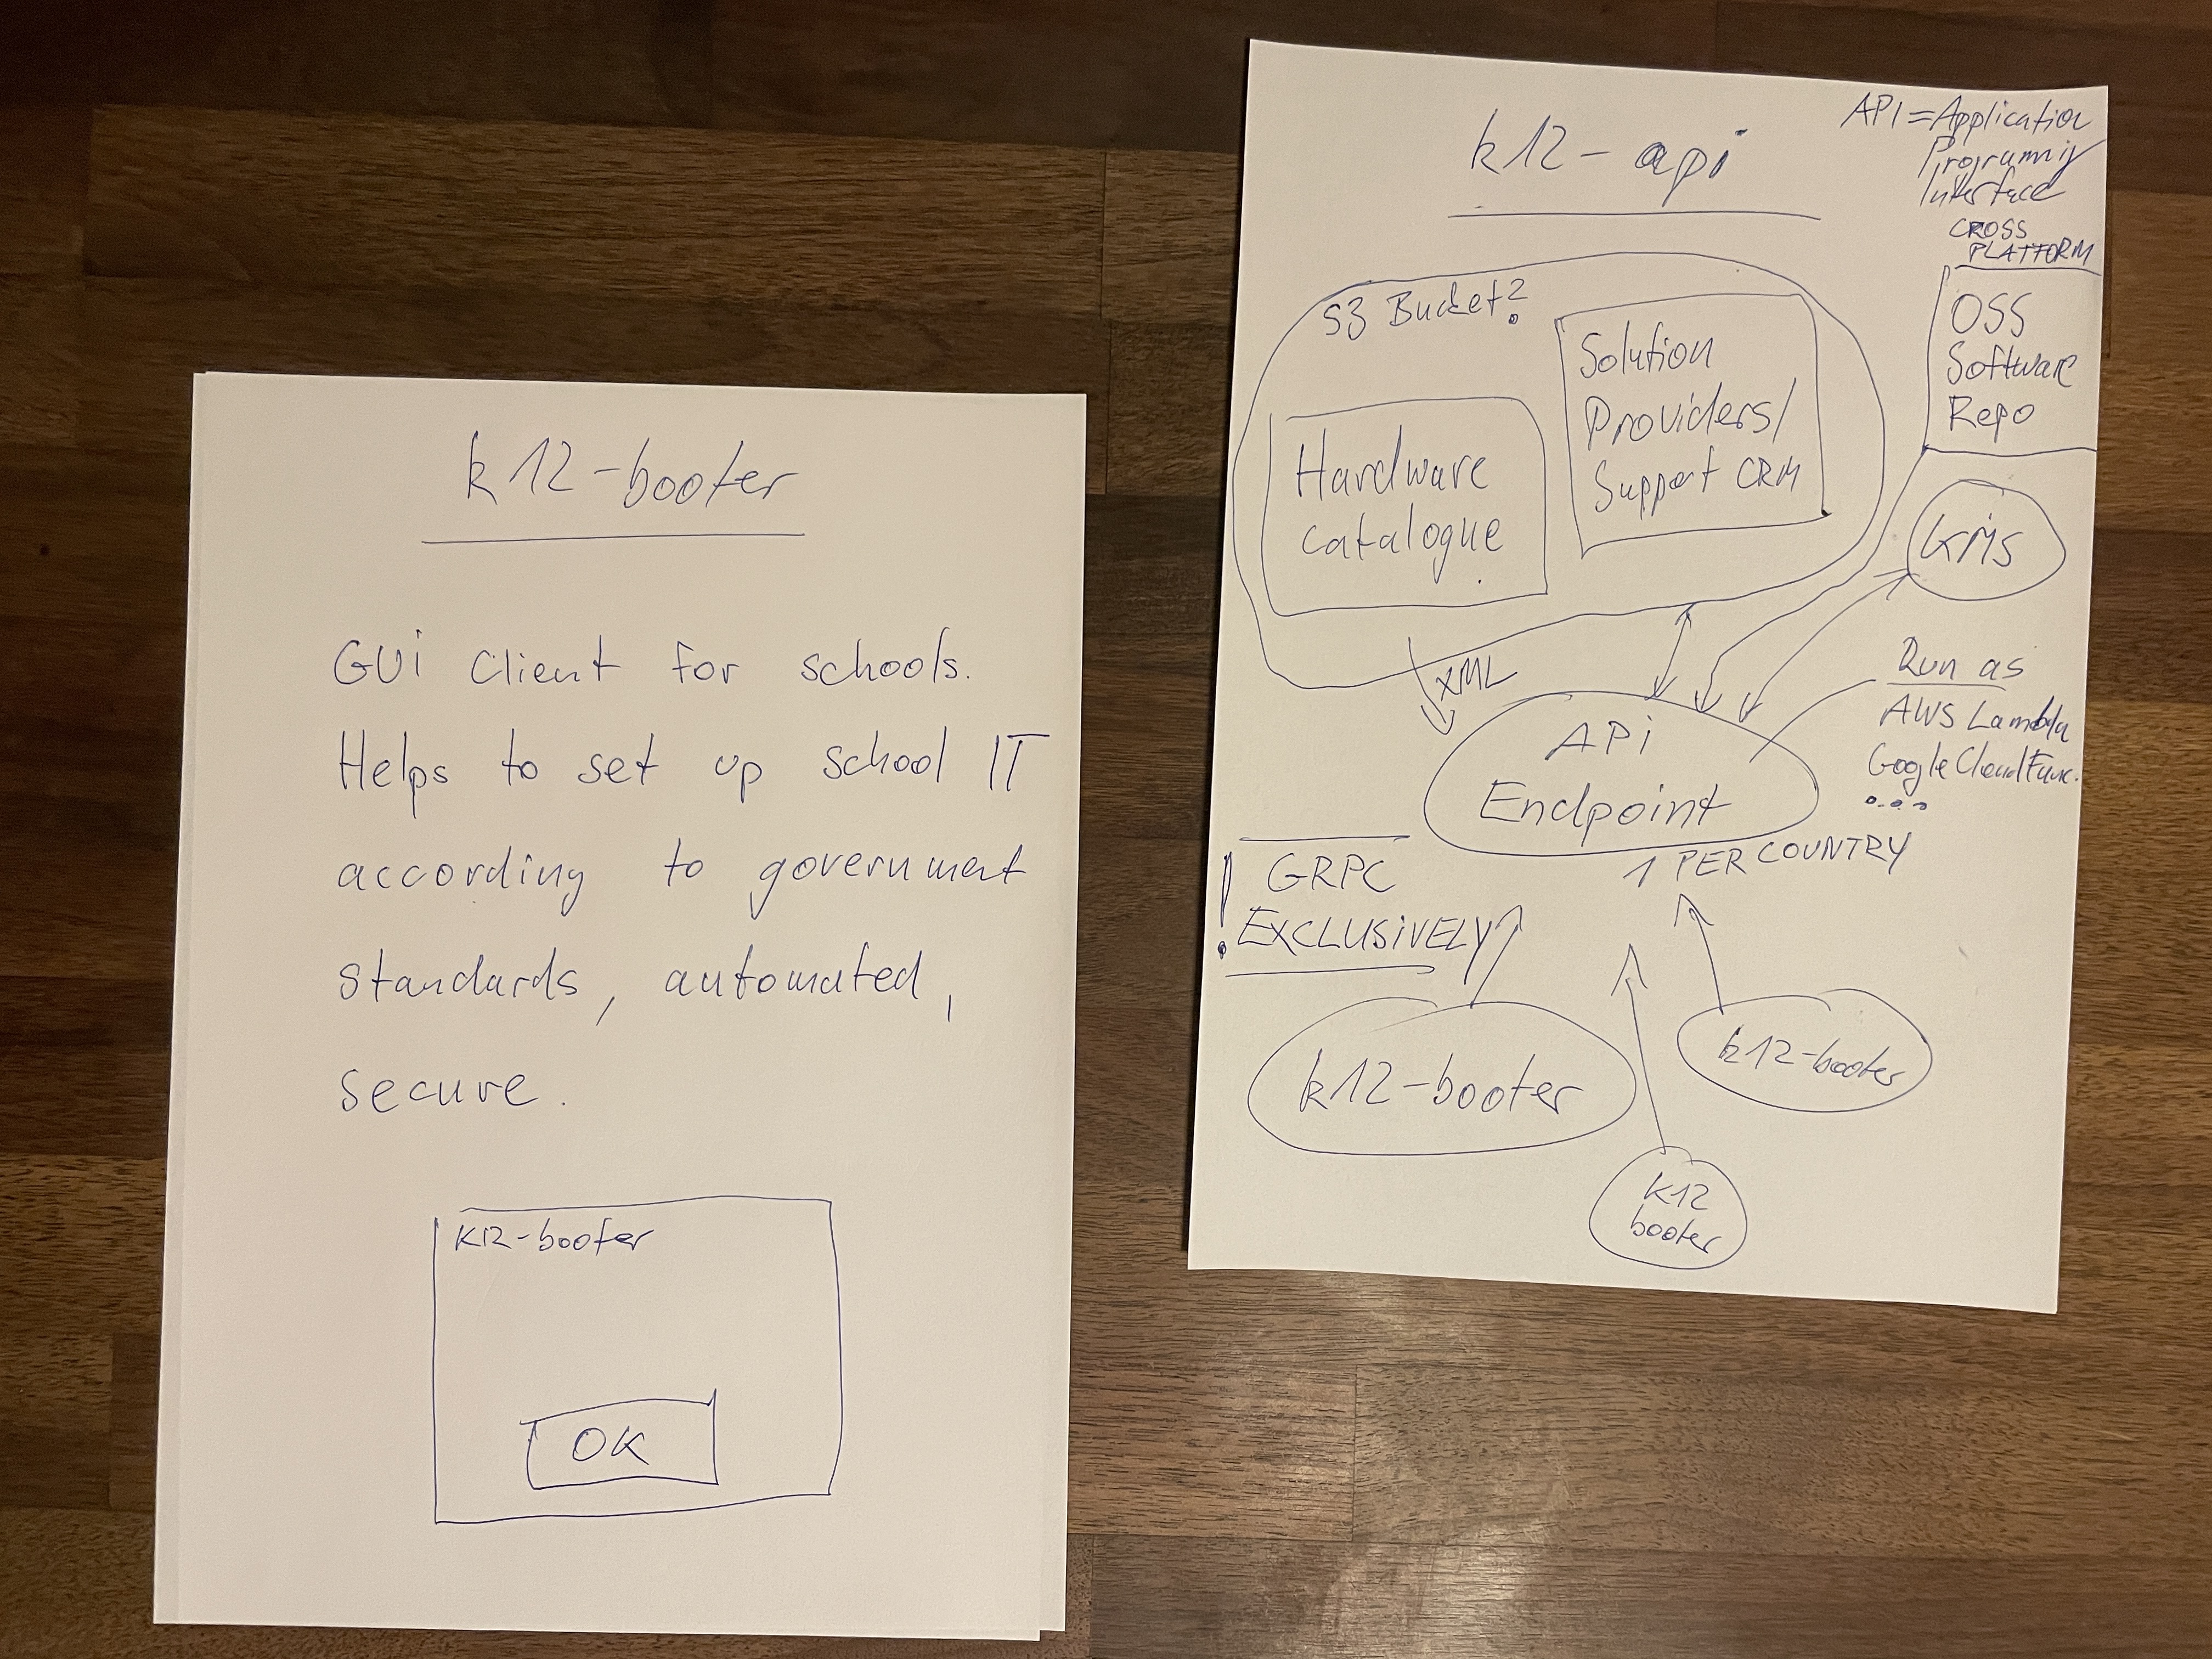 k12-booter
GUi Client for schools.
Helps to set up school IT
according to government
standards, automated,
secure.
K12-booter
OK
k12-api
API=Application
Programmig
Interface
CROSS
PLATFORM
S3 Bucket?
Solution
Providers/
Support CRM
Hardware
catalogue
OSS
Software
Repo
KMS
XML
Run as
AWS Lambda
Google Cloud Func.
....
APi
Endpoint
1 PER COUNTRY
! GRPC
EXCLUSiVELY
k12-booter
k12-booter
K12
booter